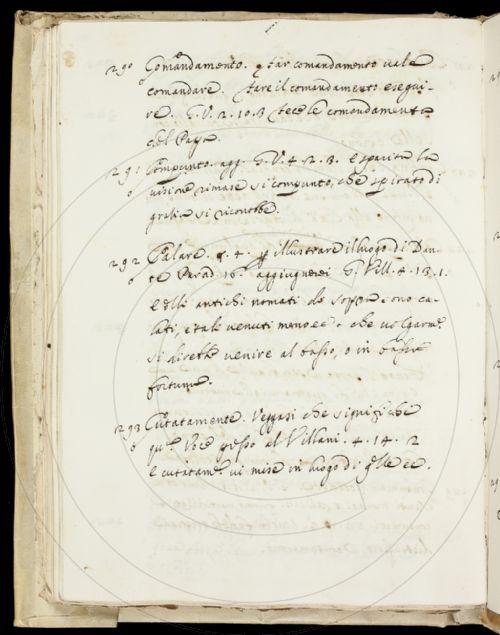 290 Comandamento. far comandamento vale
comandare. fare il comandamento esegui-
re. G. V. 2. 10. 3 fece le comandamenta
del Papa
291 Compunto. agg. G. V. 4. 2. 3. e sparita la
visione rimase sì compunto, che spirato di
grazia si riconobbe.
292 Calare. §. 4. p illustrare il luogo di Dan-
te Parad. 16. aggiugnerei G. Vill. 4. 13. 1.
E delli antichi nomati di sopra sono ca-
lati, e tale venuti meno ec. che volgarm.
si direbbe venire al basso, o in bassa
fortuna.
293 Cutatamente. Veggasi che significhi
qu. Voce presso al Villani. 4. 14. 2
e cutatam. vi mise in luogo di q.lle ec.